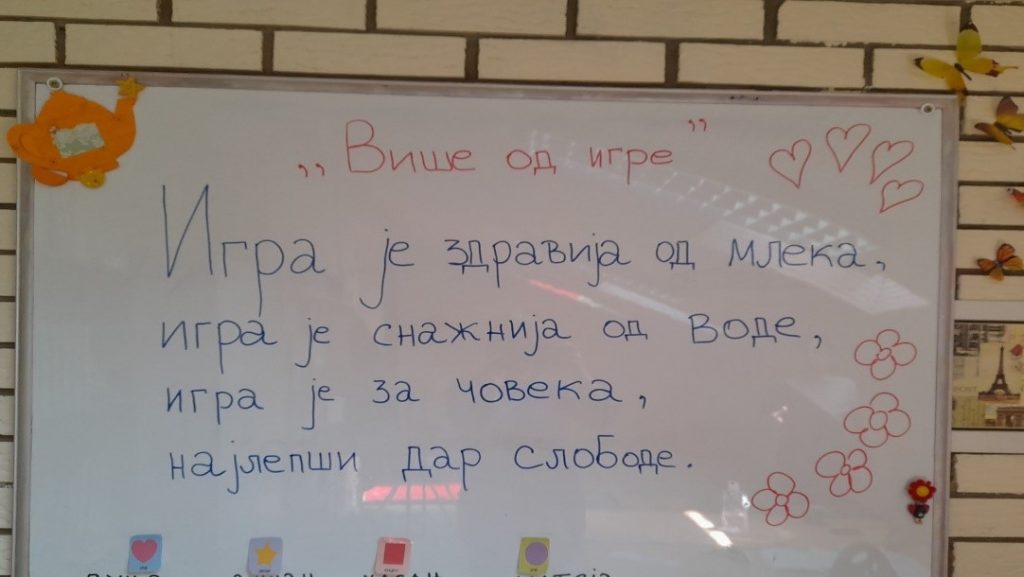 ,, Више од игре ”
Игра је здравија од млека,
игра је снажнија од воде,
игра је за човека,
најлепши дар слободе.